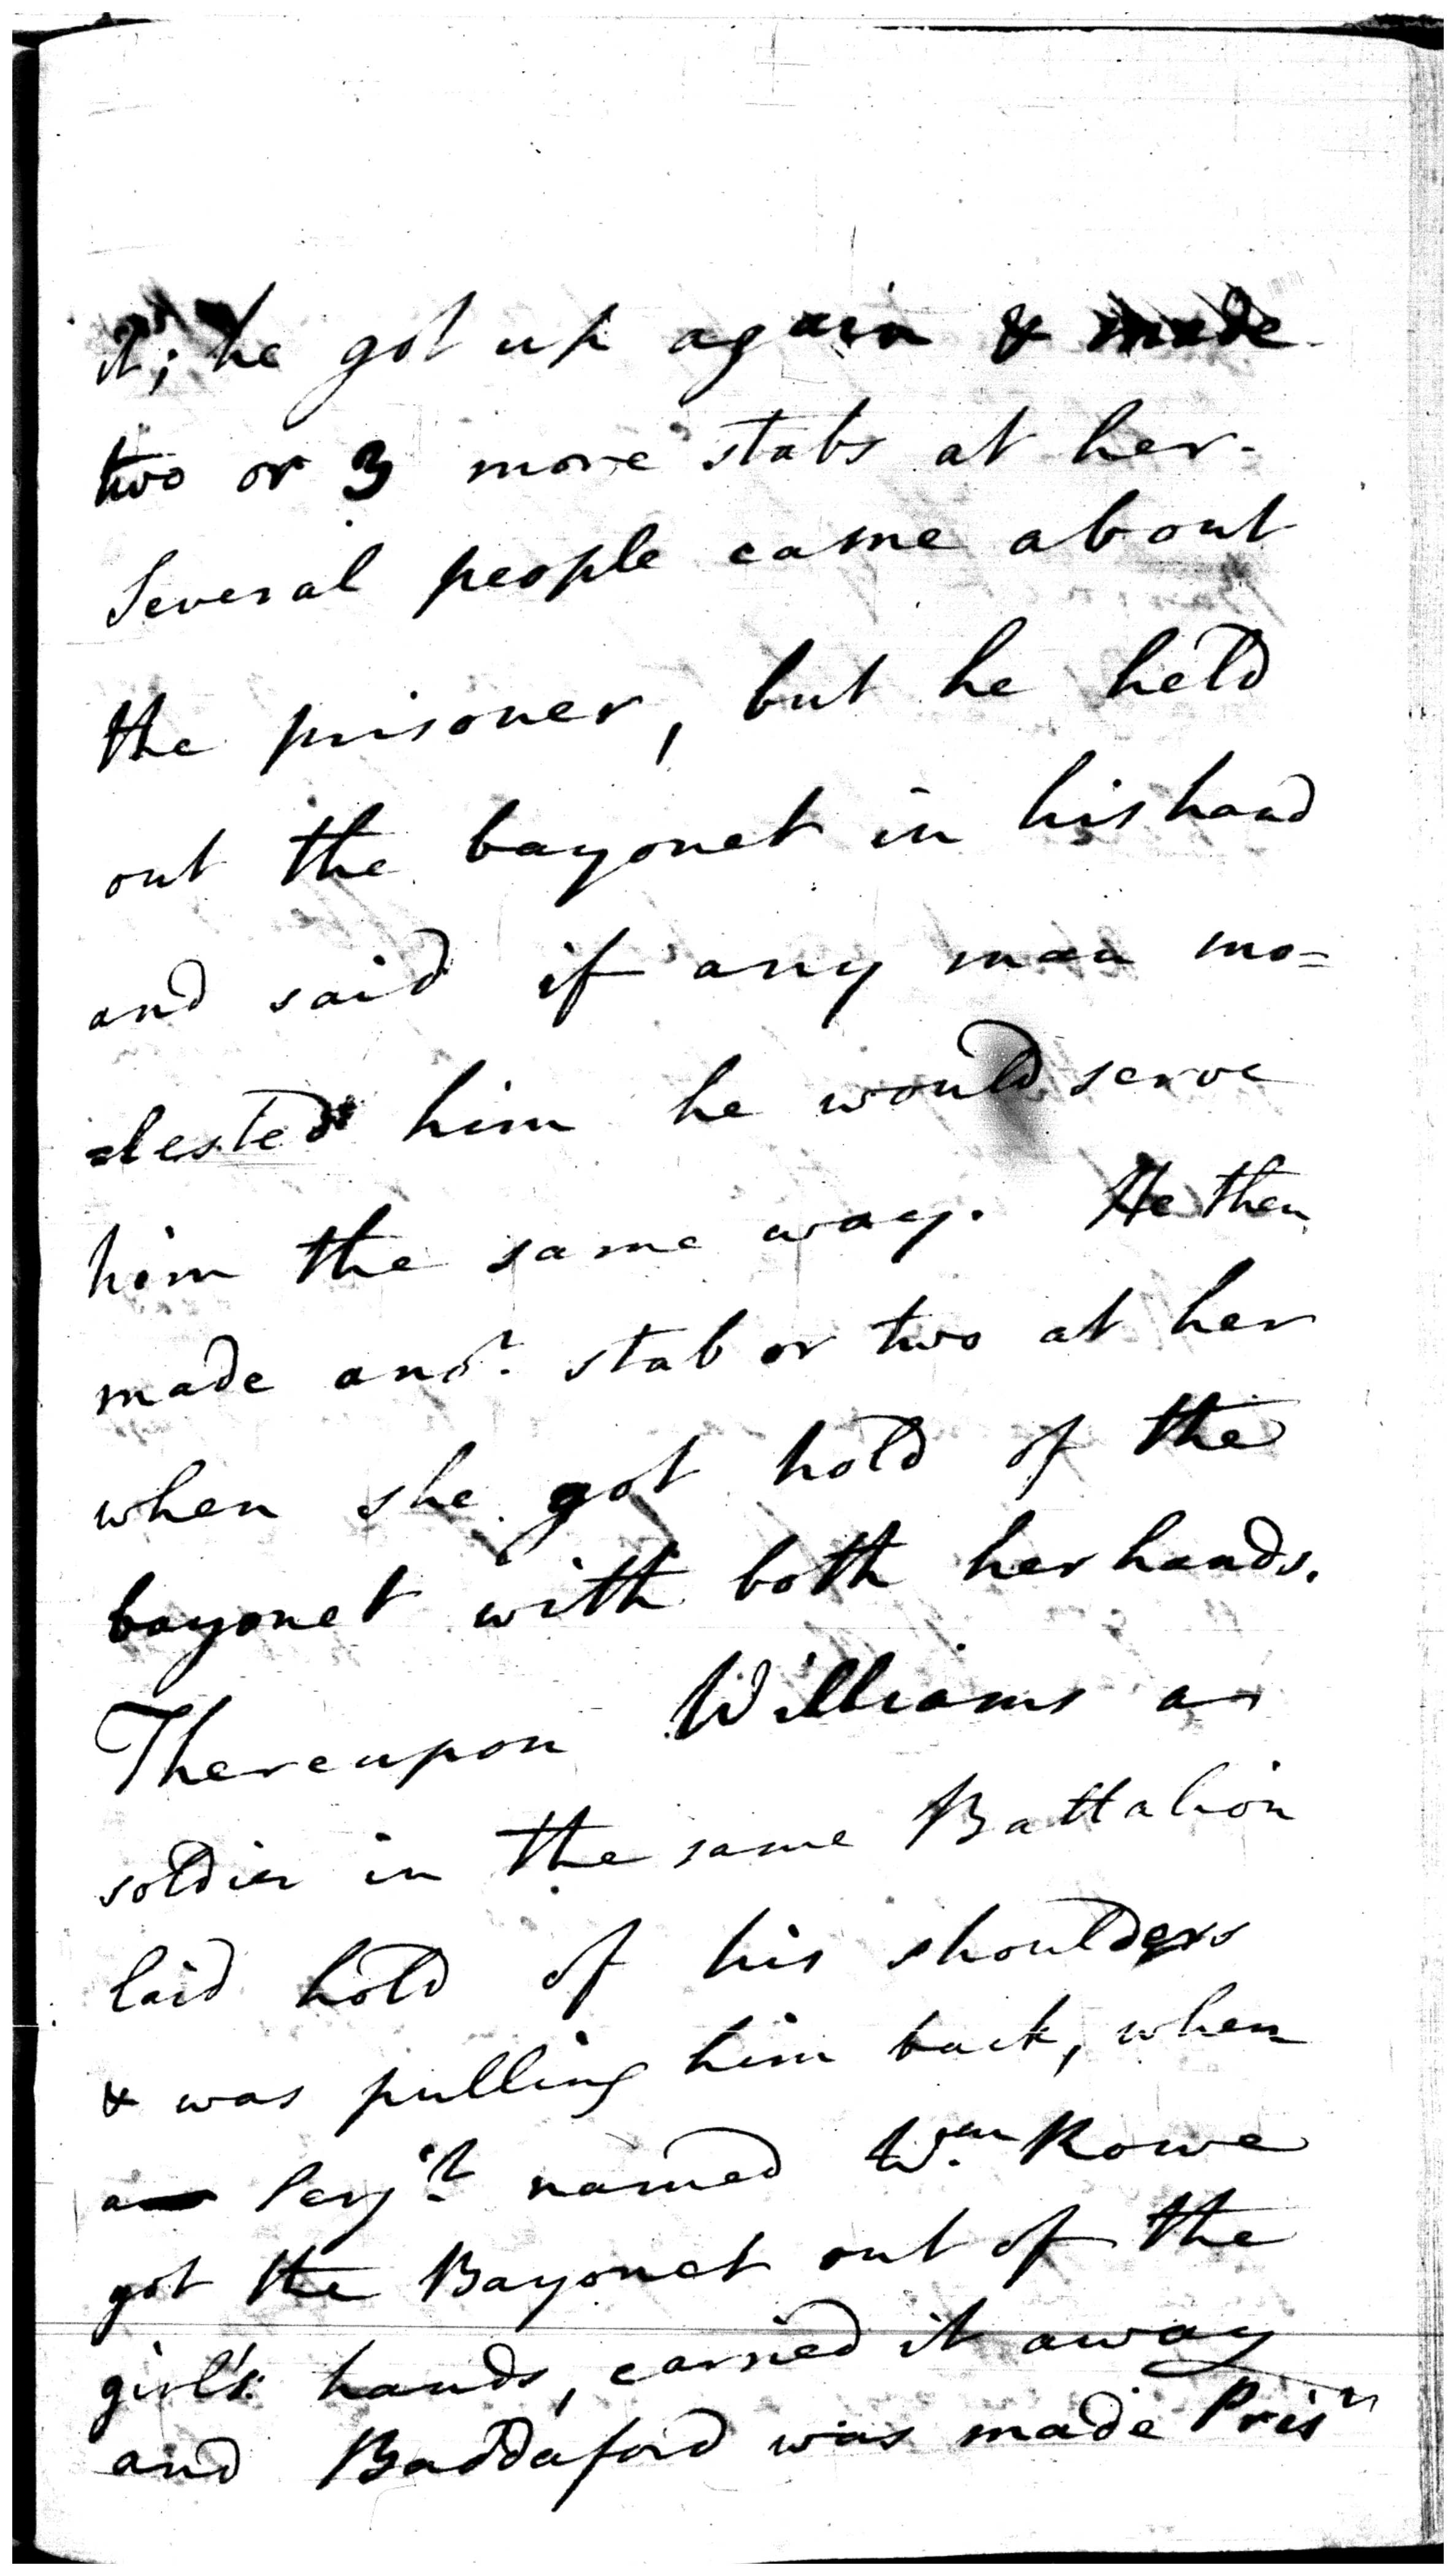 it; he got up again & made
two or 3 more stabs at her.
Several people came about
the prisoner, but he held
out the bayonet in his hand
and said if any man mo=
=lested him he would serve
him the same way. He then
made anor. stab or two at her
when she got hold of the
bayonet with both her hands.
Thereupon Williams a
soldier in the same Battalion
laid hold of his shoulders
& was pulling him back, when
a Serjt. named Wm. Rowe
got the Bayonet out of the
girl's hands, carried it away
and Baddaford was made Prisr